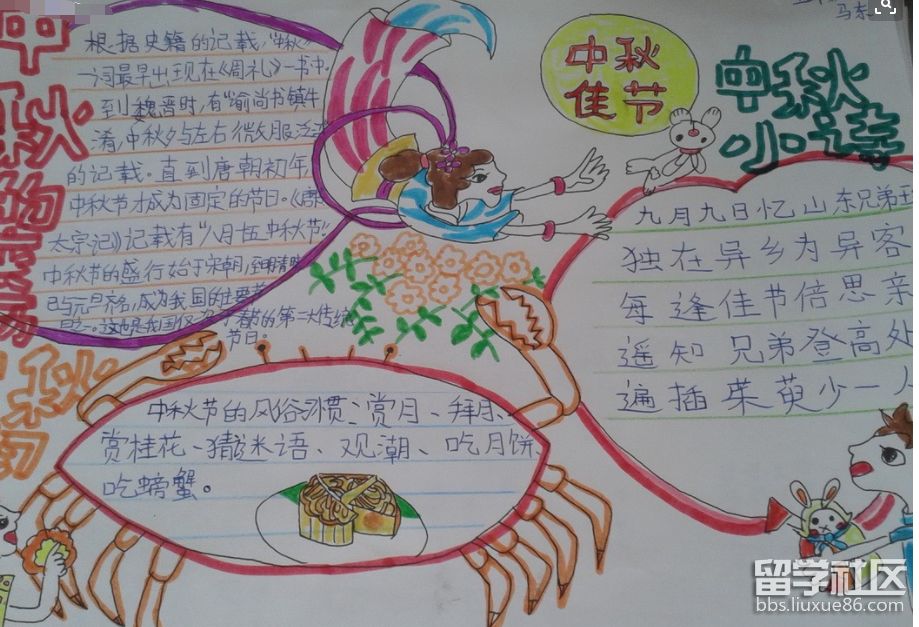 根据史籍的记载,"中秋"
一词最早出现在《周礼》一书中。
到魏晋时,有"俞尚书镇牛
渚,中秋夕与左右微服泛江"
的记载。直到唐朝初年,
中秋节才成为固定的节日。《唐
太宗记》记载有"八月十五中秋节"。
中秋节的盛行始于宋朝,至明清时,
已与元旦齐名,成为我国的主要节
日之一。这也是我国仅次于春节的第二大传统
节日。
中秋
佳节
中秋
小诗
九月九日忆山东兄弟王
独在异乡为异客
每逢佳节倍思亲
遥知兄弟登高处
遍插茱萸少一人
中秋节的风俗习惯:赏月、拜月、
赏桂花、猜迷语、观潮、吃月饼、
吃螃蟹。
留学社区
bbs.liuxue86.com